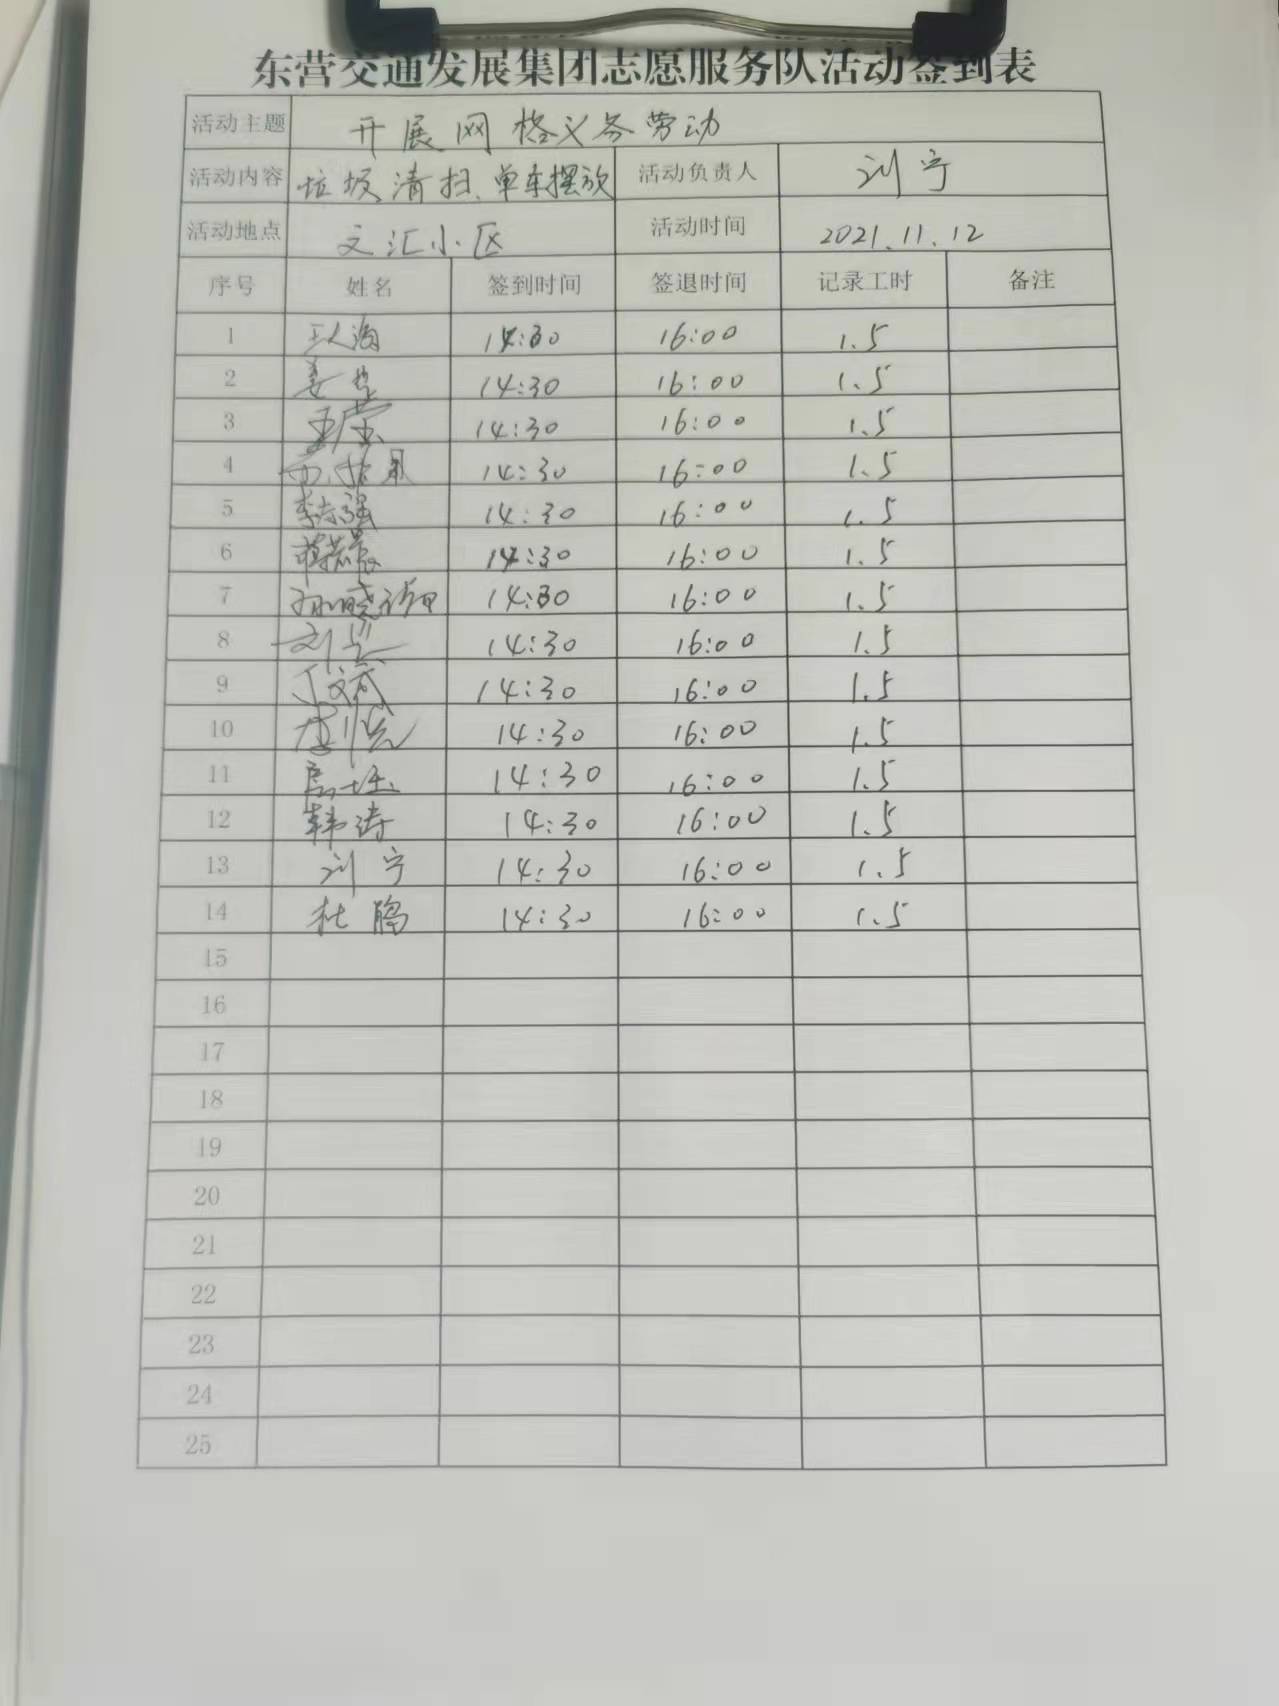 东营交通发展集团志愿服务队活动签到表
活动主题 开展网格义务劳动
活动内容 垃圾清扫、单车摆放 活动负责人 刘宁
活动地点 文汇小区 活动时间 2021.11.12
序号 姓名 签到时间 签退时间 记录工时 备注
1 14:30 16:00 1.5
2 14:30 16:00 1.5
3 14:30 16:00 1.5
4 14:30 16:00 1.5
5 李志强 14:30 16:00 1.5
6 14:30 16:00 1.5
7 14:30 16:00 1.5
8 14:30 16:00 1.5
9 14:30 16:00 1.5
10 14:30 16:00 1.5
11 14:30 16:00 1.5
12 韩涛 14:30 16:00 1.5
13 刘宁 14:30 16:00 1.5
14 杜鹃 14:30 16:00 1.5
15
16
17
18
19
20
21
22
23
24
25